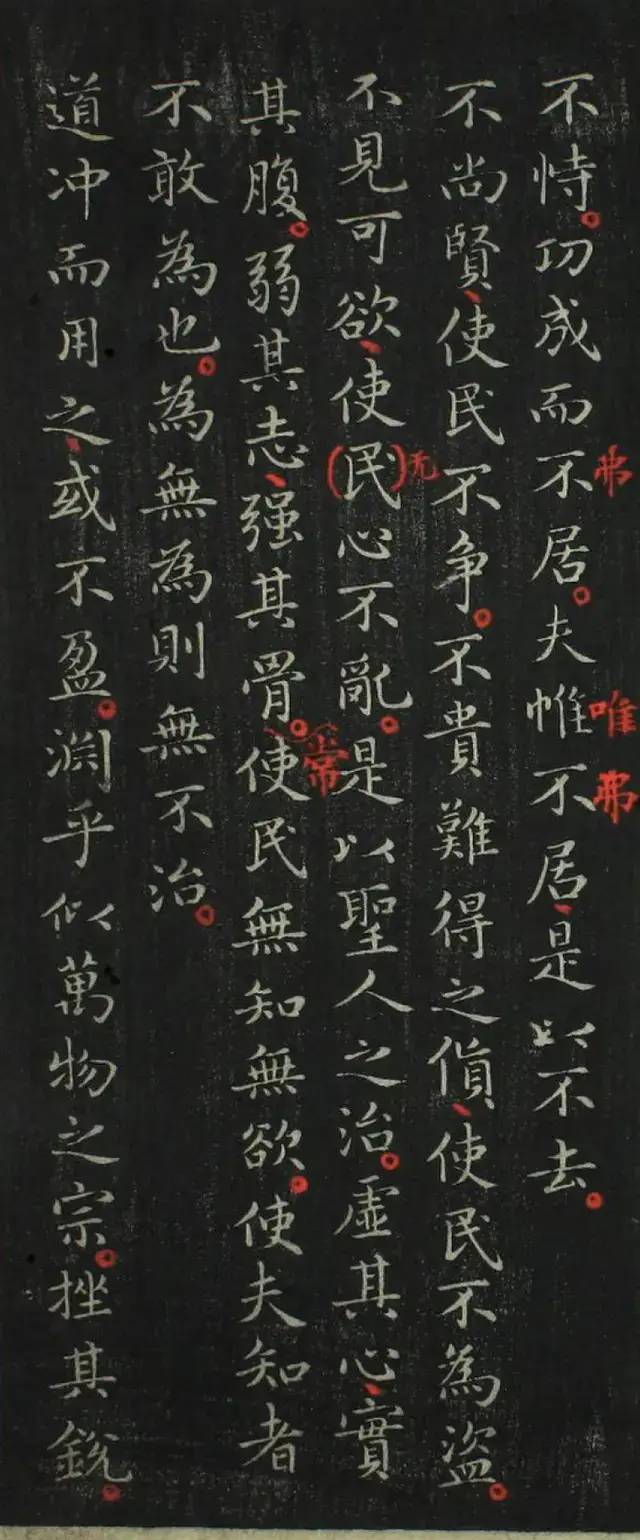 弗
唯
弗
不恃。功成而不居。夫惟不居、是以不去。
不尚賢、使民不争。不貴難得之貨、使民不為盜。
无
不見可欲、使(民)心不亂。是以聖人之治。虛其心、實
常
其腹。弱其志、强其骨。使民無知無欲。使夫知者
不敢為也。為無為則無不治。
道冲而用之、或不盈。渊乎似萬物之宗。挫其銳。